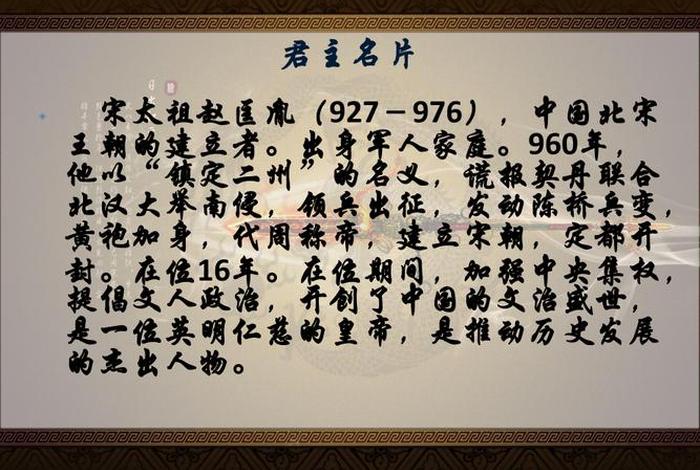 君主名片
宋太祖赵匡胤（927－976），中国北宋
王朝的建立者。出身军人家庭。960年，
他以“镇定二州”的名义，谎报契丹联合
北汉大举南侵，领兵出征，发动陈桥兵变，
黄袍加身，代周称帝，建立宋朝，定都开
封。在位16年。在位期间，加强中央集权，
提倡文人政治，开创了中国的文治盛世，
是一位英明仁慈的皇帝，是推动历史发展
的杰出人物。